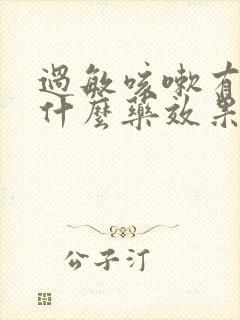 過敏咳嗽有
什麼藥效果
公子汀